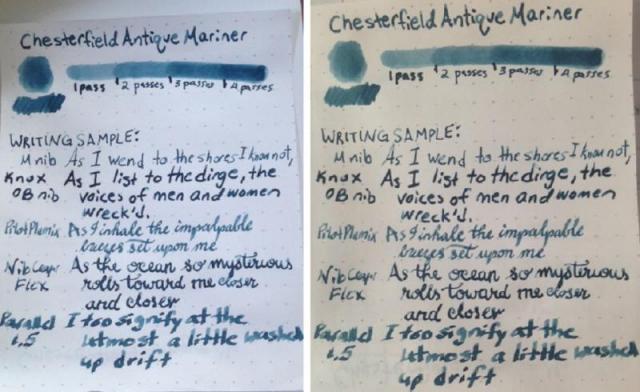 Chesterfield Antique Mariner
1 pass 2 passes 3 passes 4 passes
WRITING SAMPLE:
M nib As I wend to the shores I know not,
Knox As I list to the dirge, the
OB nib voices of men and women
wreck'd.
Pilot Plumix As I inhale the impalpable
breezes set upon me
Nib As the ocean so mysterious
Flex rolls toward me closer
and closer
Parallel I too signify at the
1.5 utmost a little washed
up drift
Chesterfield Antique Mariner
1 pass 2 passes 3 passes 4 passes
WRITING SAMPLE:
M nib As I wend to the shores I know not,
Knox As I list to the dirge, the
OB nib voices of men and women
wreck'd.
Pilot Plumix As I inhale the impalpable
breezes set upon me
Nib As the ocean so mysterious
Flex rolls toward me closer
and closer
Parallel I too signify at the
1.5 utmost a little washed
up drift